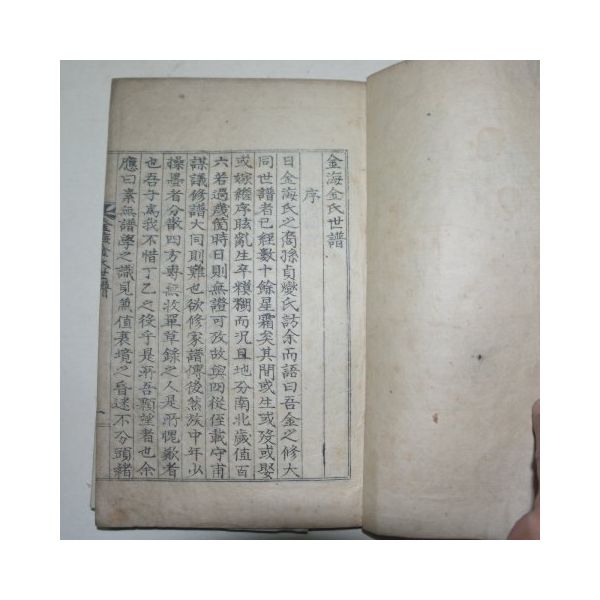 金海金氏世譜
序
日金海氏之裔孫貞燮氏訪余而語曰吾金之修大
同世譜者已經數十餘星霜矣其間或生或歿或娶
或嫁繼序眩亂生卒糢糊而況且地分南北歲值百
六若過幾箇時日則無證可攷故與四從侄載守甫
謀議修譜大同則難也欲修家譜傳後然族中年少
操墨者分散四方專無收單草錄之人是所愧歎者
也吾子爲我不惜丁乙之役乎是所吾顒望者也余
應曰素無譜學之識見兼值衰境之昏迷不分頭緖
金海金氏世譜
一